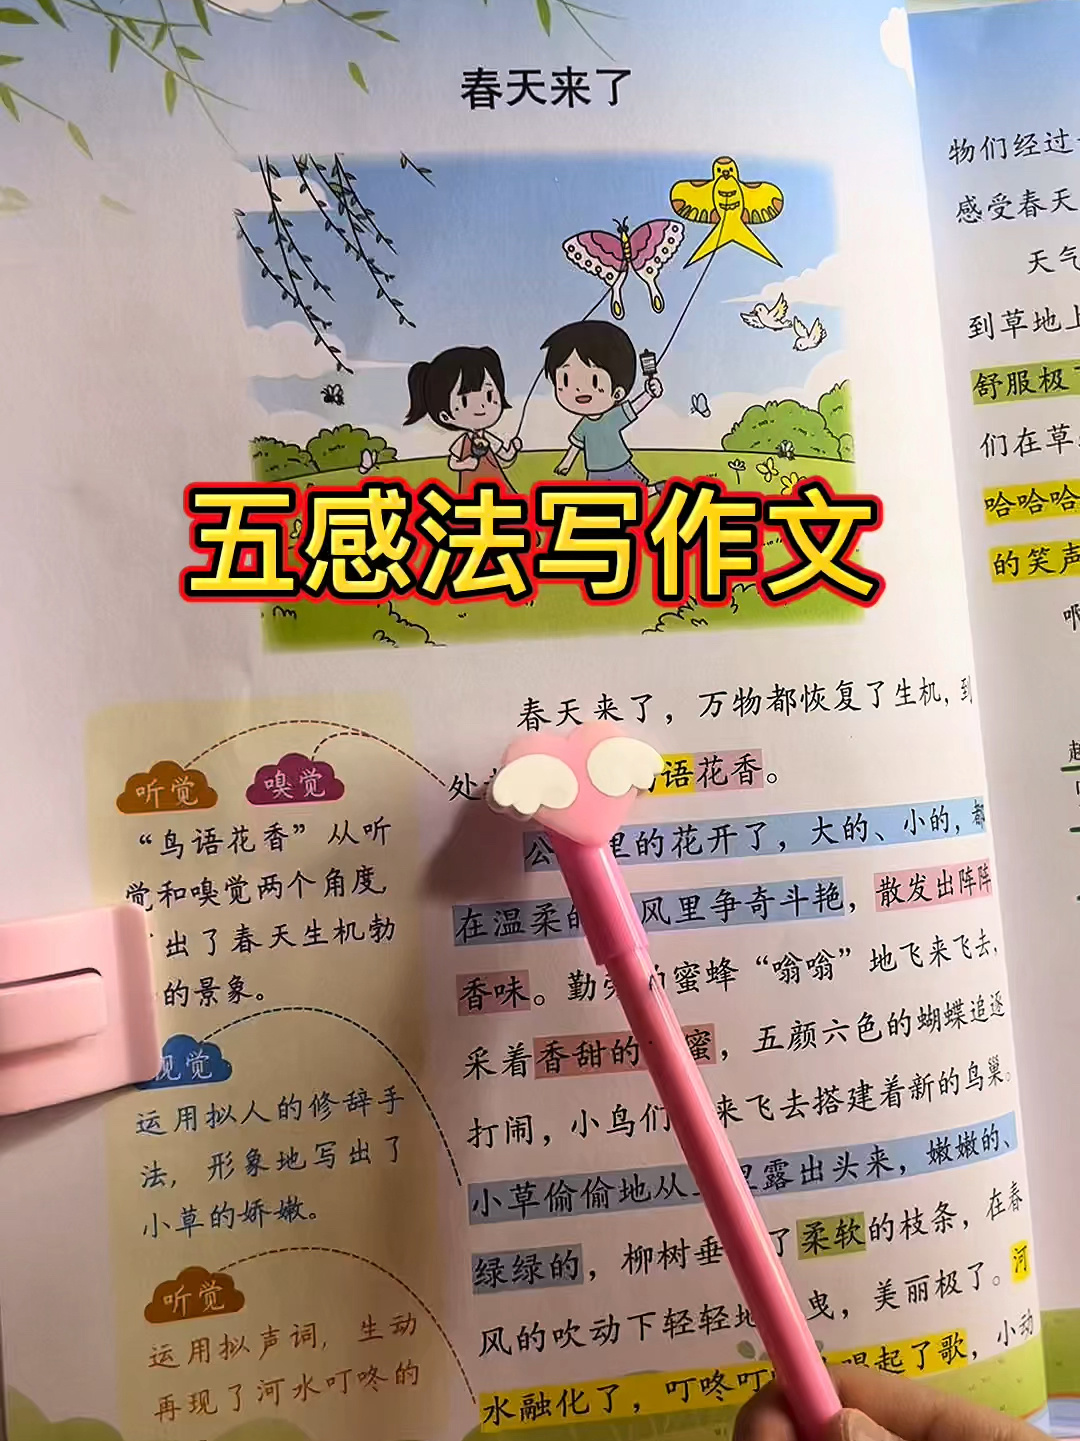 春天来了
五感法写作文
春天来了，万物都恢复了生机，到
处 语花香。
公 里的花开了，大的、小的，都
在温柔的 风里争奇斗艳，散发出阵阵
香味。勤劳的蜜蜂“嗡嗡”地飞来飞去，
采着香甜的 蜜，五颜六色的蝴蝶追逐
打闹，小鸟们 来飞去搭建着新的鸟巢。
小草偷偷地从 里露出头来，嫩嫩的、
绿绿的，柳树垂 了柔软的枝条，在春
风的吹动下轻轻地 曳，美丽极了。河
水融化了，叮咚叮 唱起了歌，小动
听觉
嗅觉
“鸟语花香”从听
觉和嗅觉两个角度
出了春天生机勃
的景象。
视觉
运用拟人的修辞手
法，形象地写出了
小草的娇嫩。
听觉
运用拟声词，生动
再现了河水叮咚的
物们经过
感受春天
天气
到草地上
舒服极了
们在草
哈哈哈
的笑声